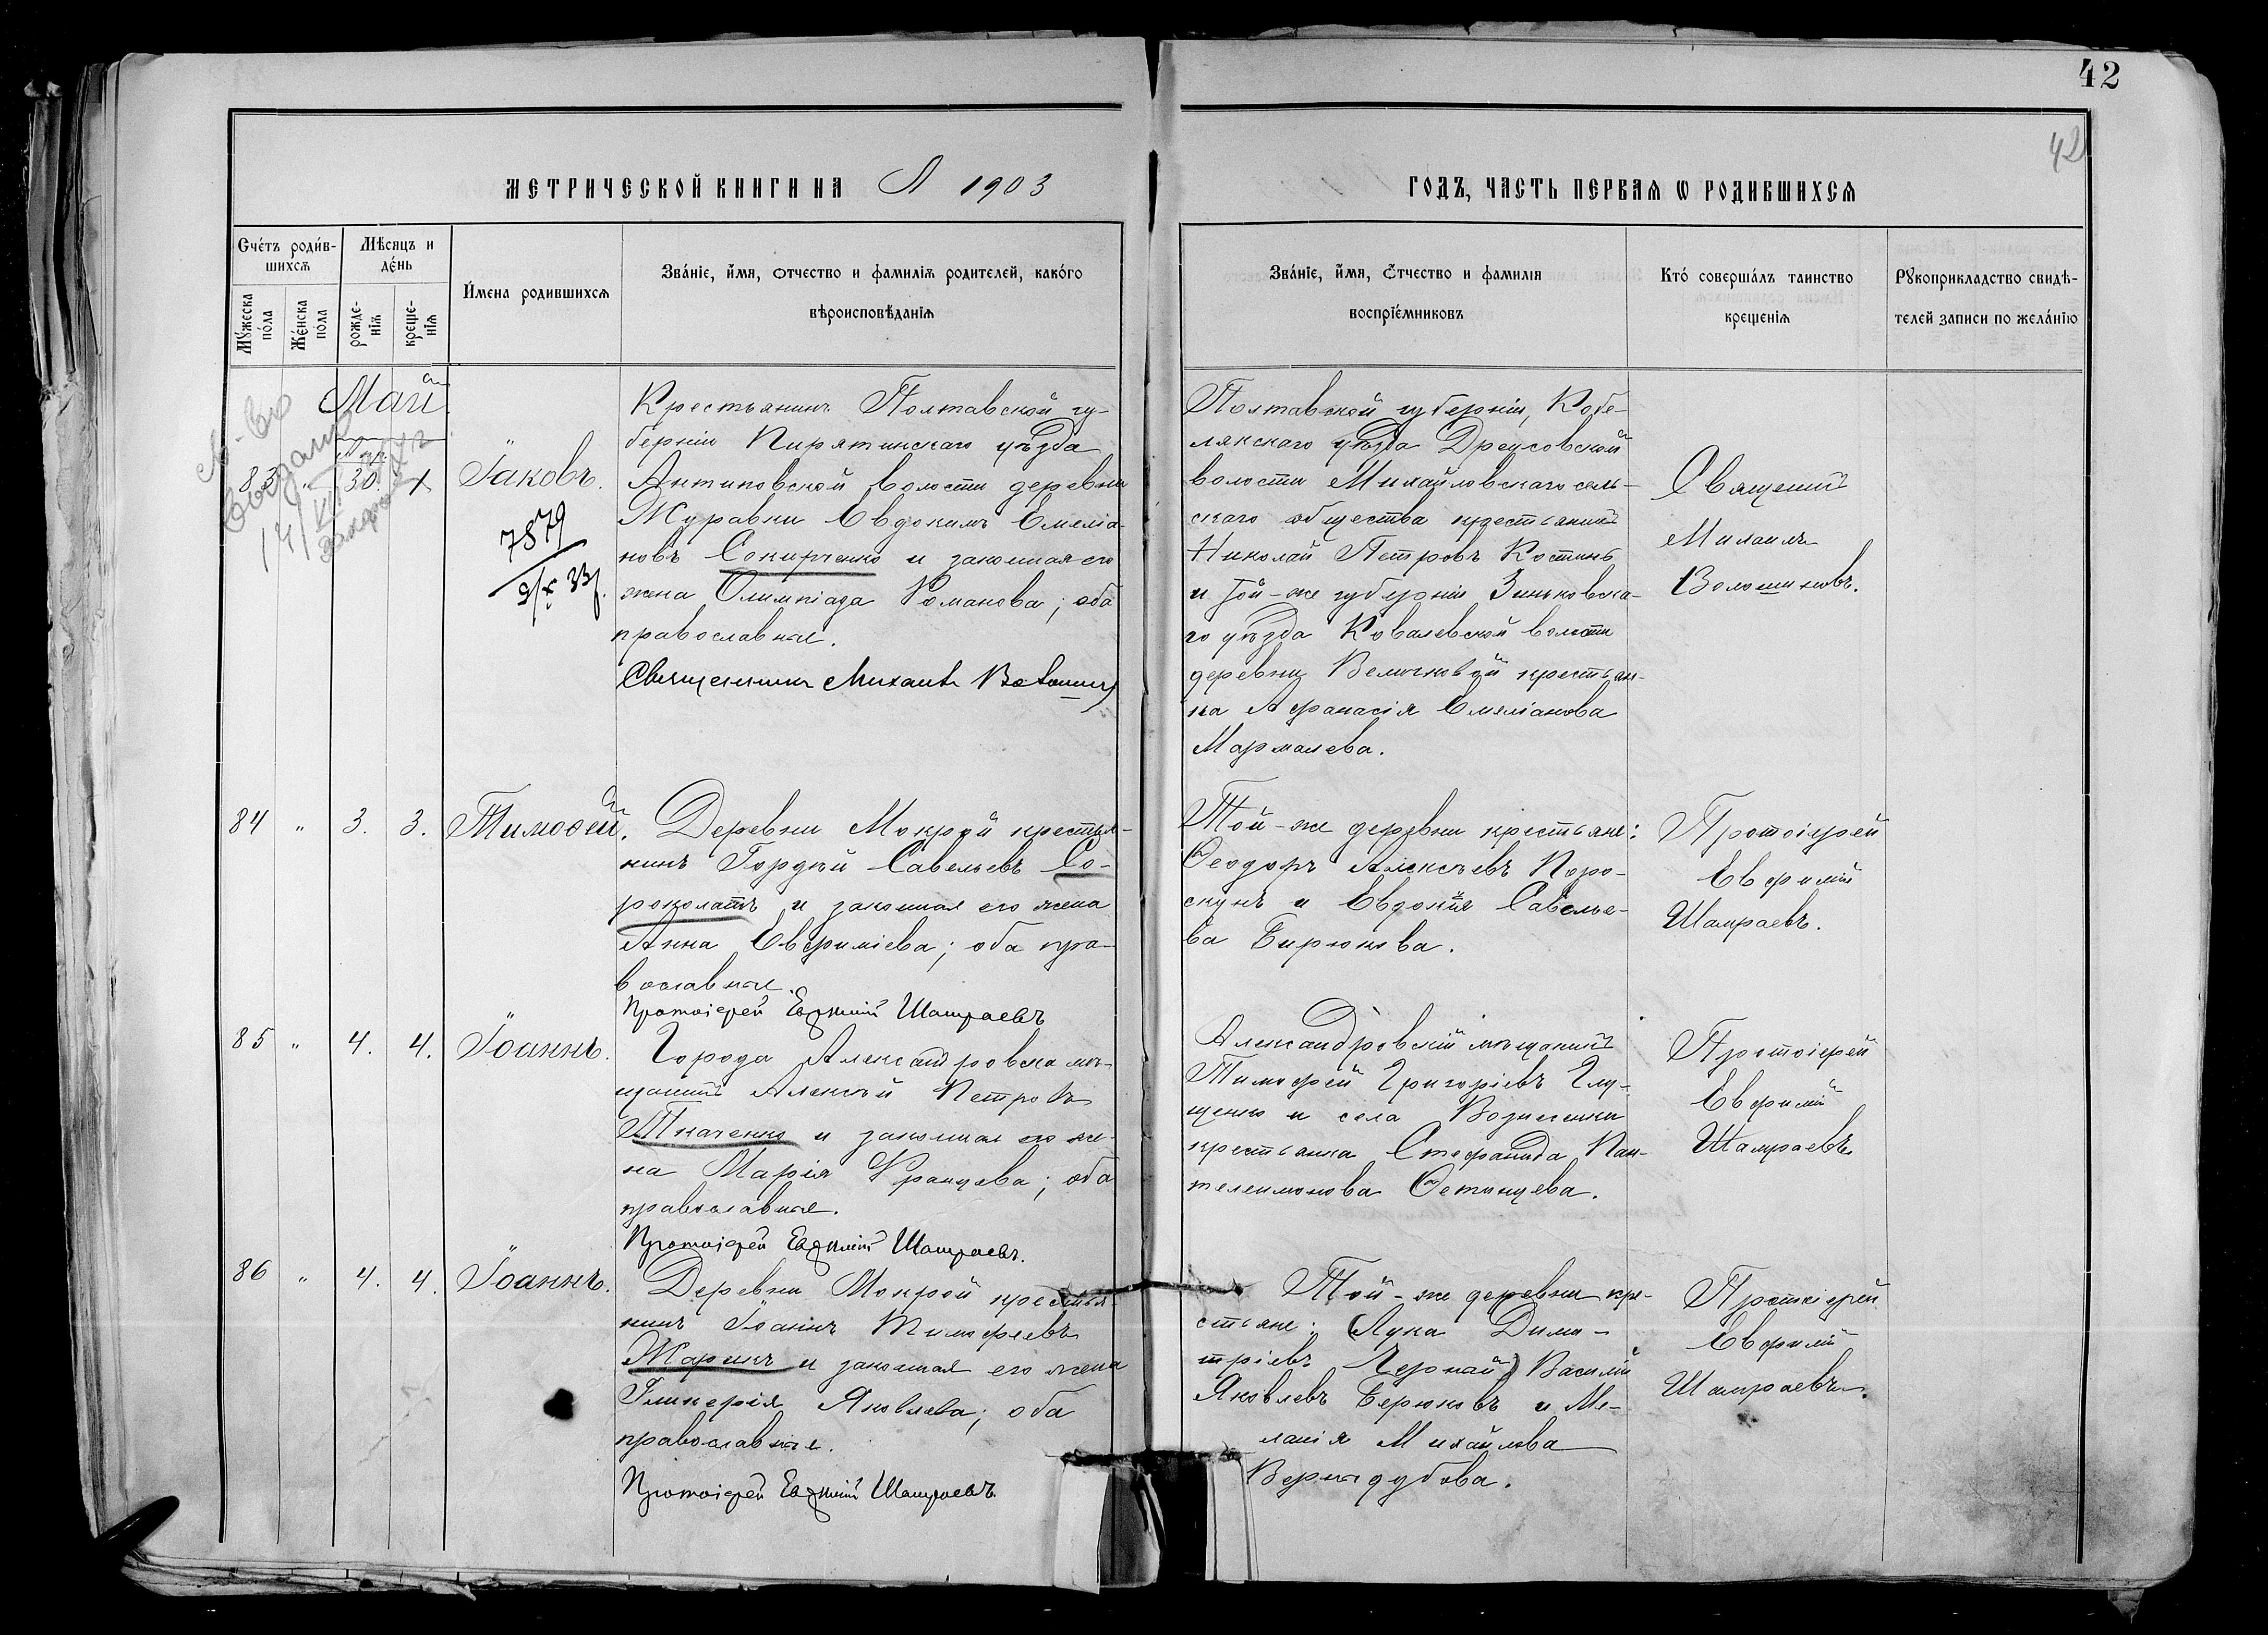 42
42
МЕТРИЧЕСКОЙ КНИГИ НА 1903
ГОДЪ, ЧАСТЬ ПЕРВАѦ Ѡ РОДИВШИХСѦ
Счéтъ роди́в-
шихсѧ
Мѣсяцъ и
дéнь
Мꙋ́жеска
по́ла
Жéнска
пола
рожде-
нїѧ
креще-
нїѧ
И́мена родившихсѧ
Звáнїе, и́мя, отчество и фамилїѧ родителей, какóго
вѣроисповѣ́данїѧ
Звáнїе, и́мя, о́тчество и фамилїя
воспрїéмниковъ
Ктó совершáлъ таинство
крещенїѧ
Рꙋкоприкладство свидѣ-
телей записи по желáнїю
Май
83 " 30. 1
Іаковъ.
7879
Крестьянинъ Полтавской гу-
берніи Пирятинскаго уѣзда
Антиповской волости деревни
Журавки Евдокимъ Емеліа-
новъ Сокирченко и законная его
жена Олимпіада Романова; оба
православные.
Священникъ Михаилъ Волошинъ
Полтавской губерніи, Кобе-
лякскаго уѣзда
волости Михайловскаго сель-
скаго общества крестьянинъ
Николай Петровъ Костинъ
и той-же губерніи Зиньковска-
го уѣзда Ковалевской волости
деревни Величковой крестьян-
ка Афанасія Емеліанова
Мармалева.
Священникъ
Михаилъ
Волошиновъ.
84 " 3. 3. Тимоѳей.
Деревни Мокрой крестья-
нинъ Гордѣй Савельевъ Со-
роколатъ и законная его жена
Анна Евфиміева; оба пра-
вославные.
Протоіерей Евфимій Шамраевъ
Той-же деревни крестьяне:
Ѳеодоръ Алексѣевъ Поро-
скунъ и Евдокія Савелье-
ва Бирюкова.
Протоіерей
Евфимій
Шамраевъ.
85 " 4. 4. Іоаннъ.
Города Александровска мѣ-
щанинъ Алексѣй Петровъ
Ткаченко и законная его же-
на Марія Францева; оба
православные.
Протоіерей Евфимій Шамраевъ.
Александровскій мѣщанинъ
Тимофей Григоріевъ Глу-
щенко и села Вознесенки
крестьянка Стефанида Пан-
телеимонова Остинцева.
Протоіерей
Евфимій
Шамраевъ.
86 " 4. 4. Іоаннъ.
Деревни Мокрой крестья-
нинъ Іоаннъ Тимофеевъ
Жаринъ и законная его жена
Гликерія Яковлева; оба
православные.
Протоіерей Евфимій Шамраевъ.
Той-же деревни кре-
стьяне: (Лука Дими-
тріевъ Чернай) Василій
Яковлевъ Берюковъ и Ме-
ланія Михайлова
Вернадубова.
Протоіерей
Евфимій
Шамраевъ.